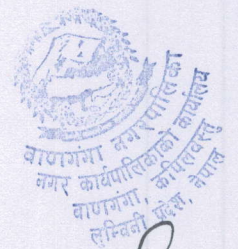 वाणगंगा नगरपालिका
नगर कार्यपालिकाको कार्यालय
वाणगंगा, कपिलवस्तु
लुम्विनी प्रदेश, नेपाल